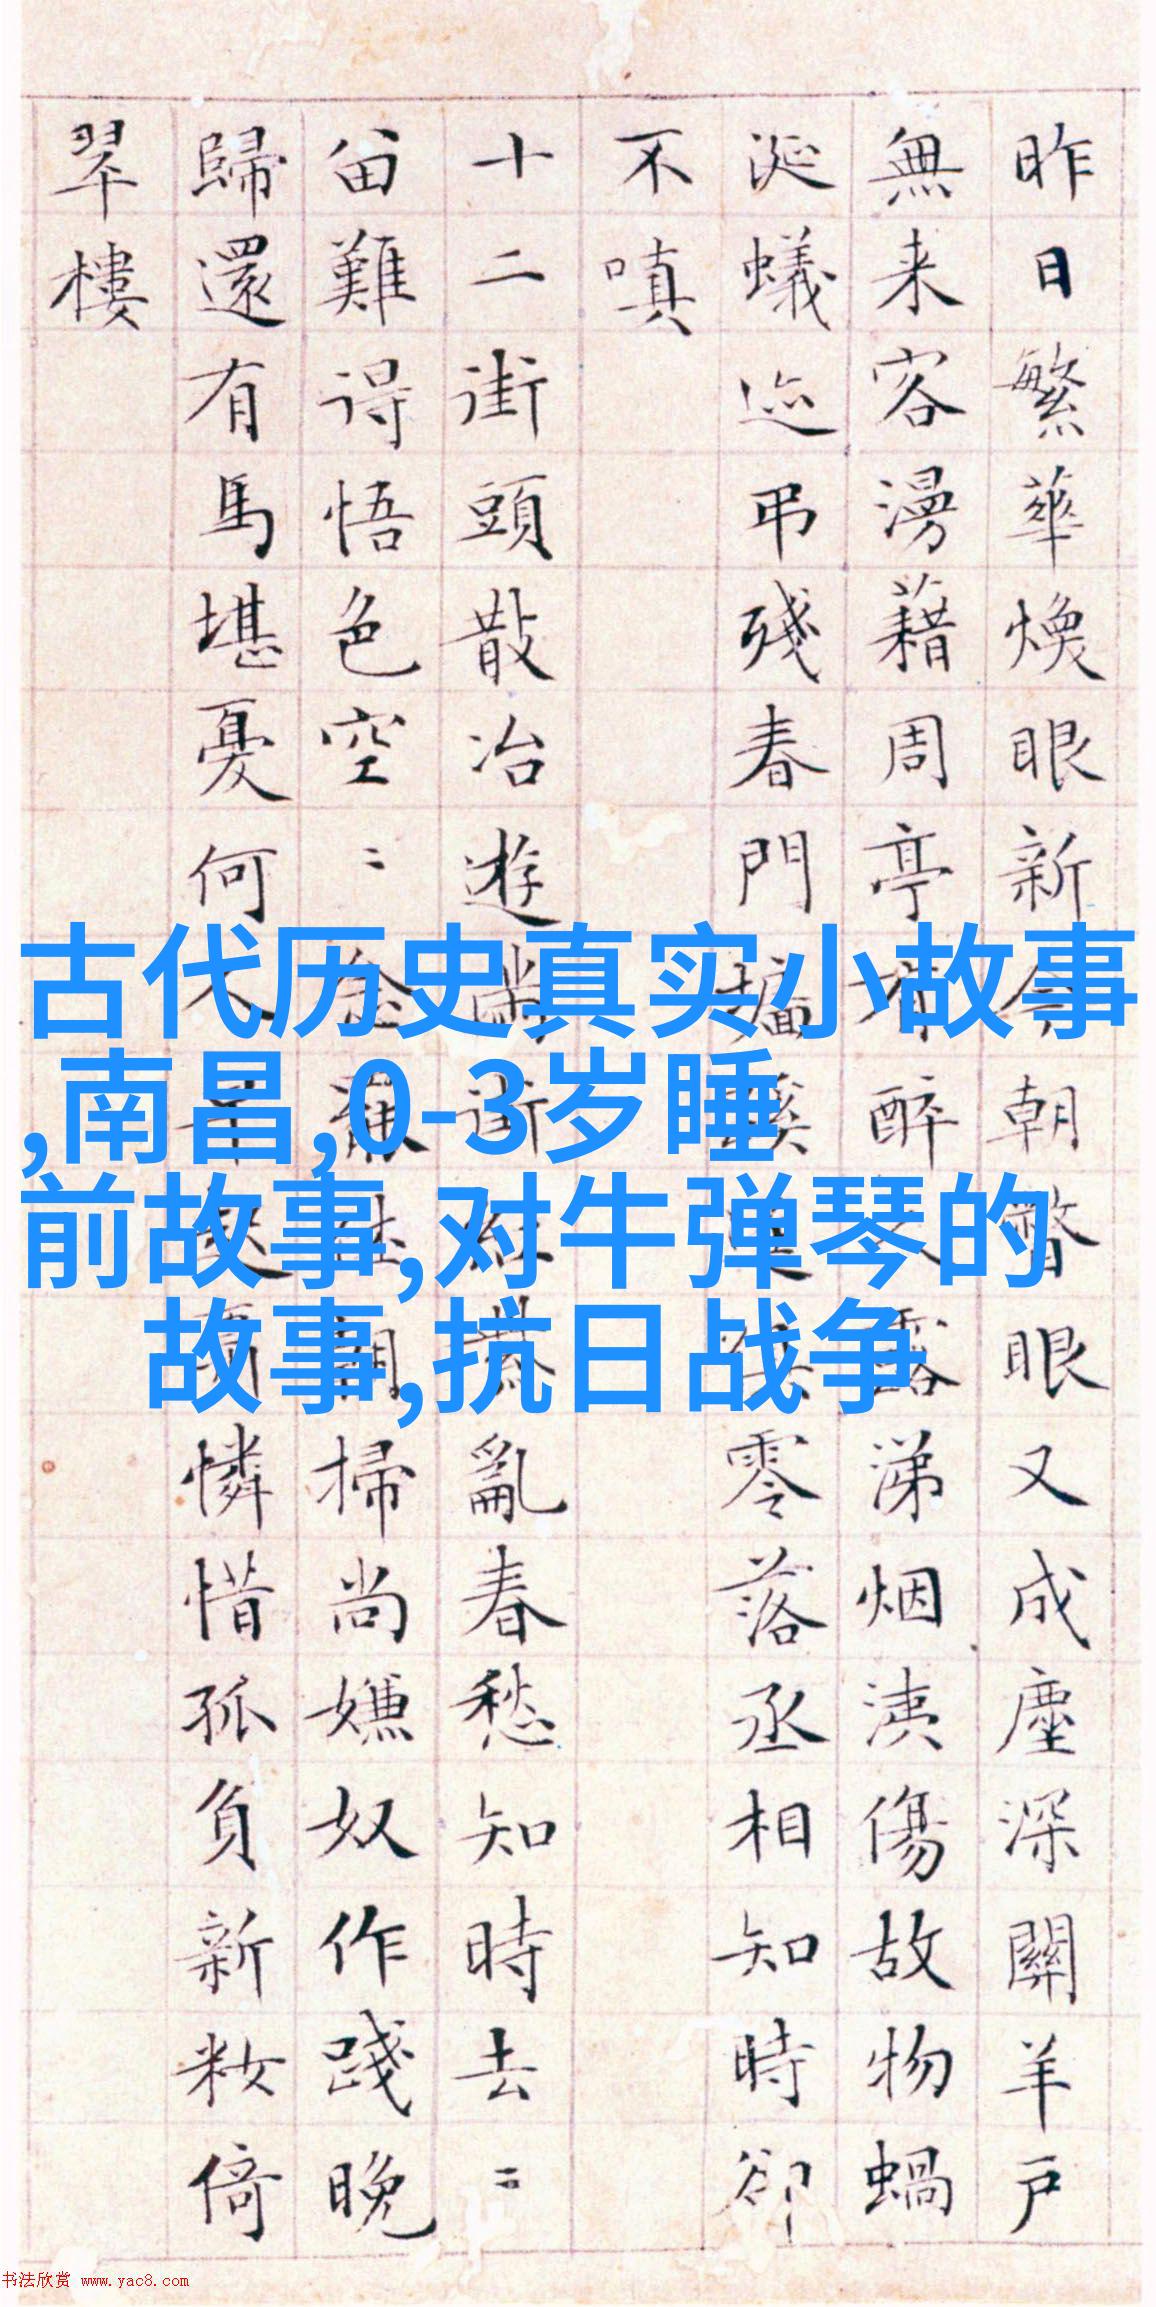 昨日繁華煥眼新今朝瞥眼又成塵深關羊戶
無来客漫藉周亭醉露涕烟洟傷故物蝸
涎蟻迹弔殘春門零落丞相知時卻
不嗔
十二街頭散冶遊街亂春愁知時去〻
留難得悟色空〻掃尚嫌奴作踐晚
歸還有馬堪憂何憐惜孤負新妝倚
翠樓
古代历史真实小故事
,南昌,0-3岁睡
前故事,对牛弹琴的
故事,抗日战争
书法欣赏 www.yac8.com